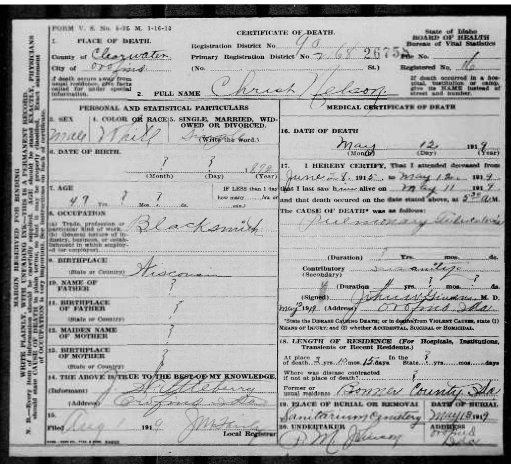 FORM V. S. No. 5-25 M. 1-16-12
CERTIFICATE OF DEATH.
State of Idaho
BOARD OF HEALTH
Bureau of Vital Statistics
1. PLACE OF DEATH.
County of Clearwater
City of Orofino
Registration District No. 90
Primary Registration District No. 2168 26755
File No.
(No. St.)
Registered No. 16
If death occurs away from usual residence, give facts called for under special information.
If death occurred in a hospital, institution or camp, give its NAME instead of street and number.
2. FULL NAME Christ Nelson
PERSONAL AND STATISTICAL PARTICULARS
3. SEX Male
4. COLOR OR RACE White
5. SINGLE, MARRIED, WIDOWED OR DIVORCED.
(Write the word.)
6. DATE OF BIRTH
? ?
(Month) (Day) (Year)
7. AGE
47 Yrs. ? Mos. ? ds.
IF LESS than 1 day
8. OCCUPATION
(a) Trade, profession or particular kind of work.
(b) General nature of industry, business, or establishment in which employed (or employer)
Blacksmith
9. BIRTHPLACE
(State or Country) Wisconsin
10. NAME OF FATHER ?
11. BIRTHPLACE OF FATHER
(State or Country) ?
12. MAIDEN NAME OF MOTHER ?
13. BIRTHPLACE OF MOTHER
(State or Country) ?
14. THE ABOVE IS TRUE TO THE BEST OF MY KNOWLEDGE.
(Address) Orofino Ida
15.
Filed Aug 1 1919
Local Registrar
MEDICAL CERTIFICATE OF DEATH
16. DATE OF DEATH
May 12 1919
(Month) (Day) (Year)
17. I HEREBY CERTIFY, That I attended deceased from
June 28 1915 to May 12 1919
that I last saw him alive on May 11 1919
and that death occurred on the date stated above, at 5:30 A M.
The CAUSE OF DEATH* was as follows:
Pulmonary Tuberculosis
(Duration) ? Yrs. mos. ds.
Contributory Insanity
(Secondary)
(Duration) ? yrs. ? mos. ? ds.
(Signed) John W. Givens M. D.
May 12 1919 (Address) Orofino Ida
*State the DISEASE CAUSING DEATH, or in deaths from VIOLENT CAUSES, state (1) MEANS OF INJURY; and (2) whether ACCIDENTAL, SUICIDAL OR HOMICIDAL.
18. LENGTH OF RESIDENCE (For Hospitals, Institutions, Transients or Recent Residents.)
At place of death 3 yrs. 10 mos. 15 ds. In the State ? yrs. mos. days
Where was disease contracted if not at place of death? ?
Former or usual residence Bonner County Ida
19. PLACE OF BURIAL OR REMOVAL
Sanitarium Cemetery
DATE OF BURIAL
May 13 1919
20. UNDERTAKER
(Address)
Orofino Ida
MARGIN RESERVED FOR BINDING
WRITE PLAINLY, WITH UNFADING INK—THIS IS A PERMANENT RECORD.